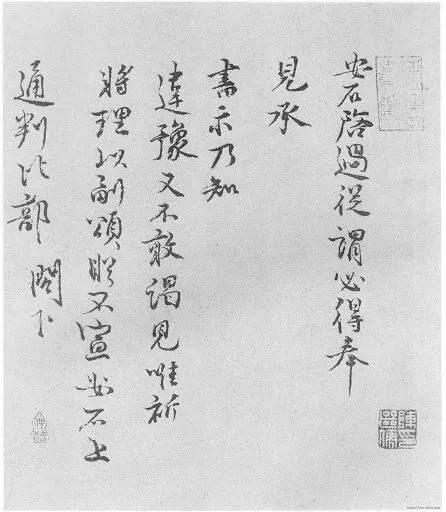 安石啓過從謂必得奉
見承
書示乃知
違豫又不敢謁見唯祈
將理以副頌眇不宣安石上
通判比部 閣下